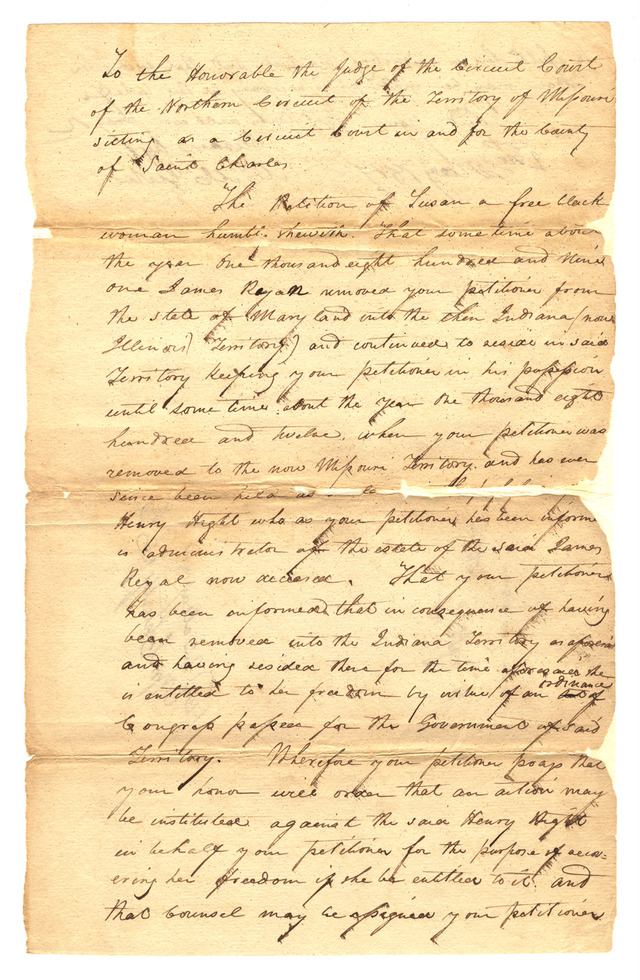 To the Honorable the Judge of the Circuit Court
of the Northern Circuit of the Territory of Missouri
sitting as a Circuit Court in and for the County
of Saint Charles
The Petition of Susan a free black
woman humbly sheweth. That some time about
the year One thousand eight hundred and Nine
one James Royan removed your petitioner from
the state of Maryland into the then Indiana (now
Illinois) Territory) and continued to reside in said
Territory keeping your petitioner in his possession
until some time about the year One thousand eight
hundred and twelve, when your petitioner was
removed to the now Missouri Territory, and has ever
since been held as
Henry Hight who as your petitioner has been inform
is administrator of the estate of the said James
Royal now deceased. That your petitioner
has been informed that in consequence of having
been removed into the Indiana Territory as aforesaid
and having resided there for the time aforesaid she
is entitled to her freedom by virtue of an ordinance of
Congress passed for the Government of said
Territory. Wherefore your petitioner prays that
your honor will order that an action may
be instituted against the said Henry Hight
in behalf your petitioner for the purpose of recov-
ering her freedom if she be entitled to it and
that Counsel may be assigned your petitioner